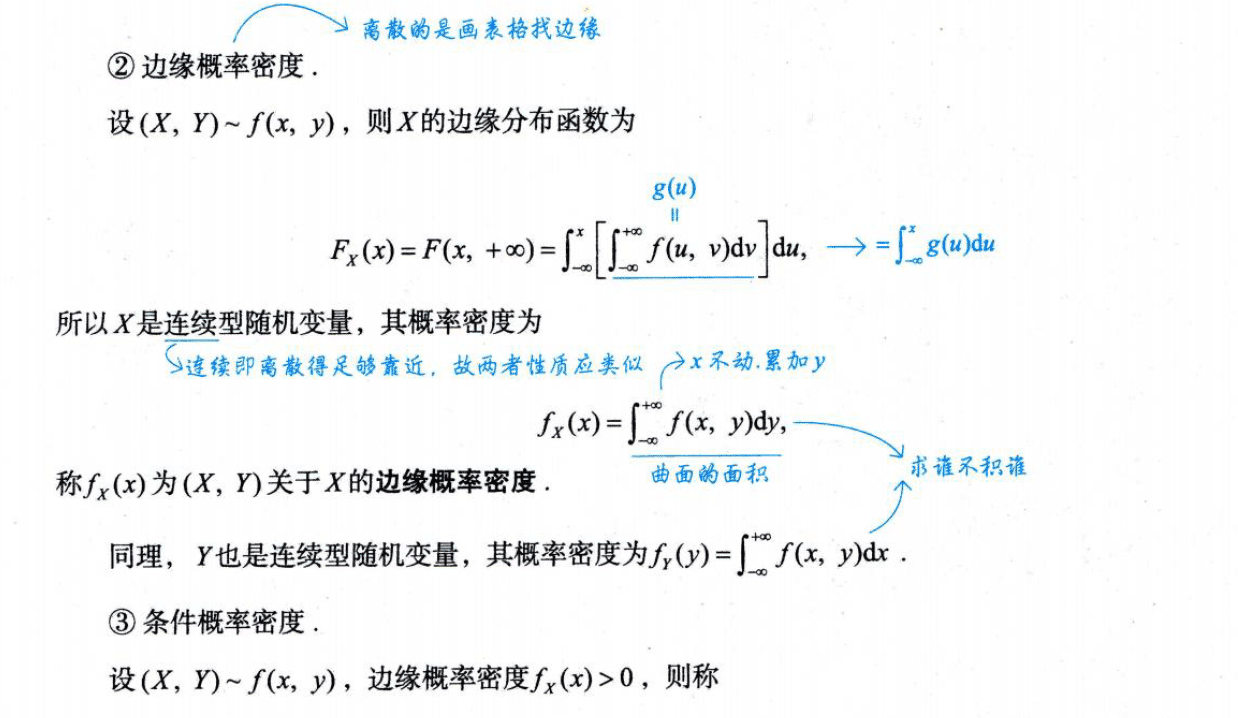 离散的是画表格找边缘
② 边缘概率密度.
设(X, Y)~f(x, y), 则X的边缘分布函数为
g(u)
=
F_X(x)=F(x, +∞)=∫_{-∞}^{x}[∫_{-∞}^{+∞}f(u, v)dv]du, → =∫_{-∞}^{x}g(u)du
所以X是连续型随机变量, 其概率密度为
连续即离散得足够靠近, 故两者性质应类似 x不动.累加y
f_X(x)=∫_{-∞}^{+∞}f(x, y)dy,
曲面的面积 求谁不积谁
称f_X(x)为(X, Y)关于X的边缘概率密度.
同理, Y也是连续型随机变量, 其概率密度为f_Y(y)=∫_{-∞}^{+∞}f(x, y)dx.
③ 条件概率密度.
设(X, Y)~f(x, y), 边缘概率密度f_X(x)>0, 则称